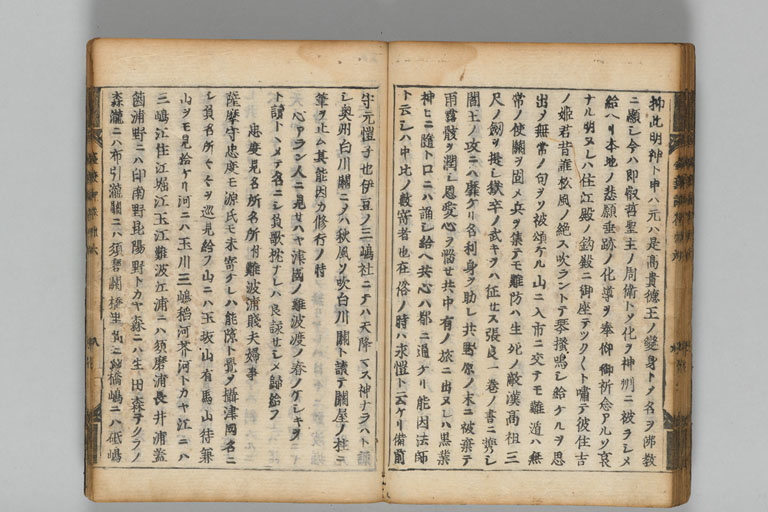 抑此明神ト申ハ元ハ是高貴徳王ノ變身トノ名ヲ佛教
ニ顯シ今ハ即叡哲聖主ノ周衛トノ化ヲ神州ニ被ラシメ
給ヘリ本地ノ悲願垂跡ノ化導ヲ奉仰御祈念アルソ哀
ナル明ヌレハ住江殿ノ釣殿ニ御座テツクヽト嘯テ彼住吉
ノ姫君昔誰松風ノ絶ス吹ラントテ琴掻鳴シ給ケルヲ思
出ヌ無常ノ句ヲソ被頌ケル山ニ入市ニ交テモ難遁ハ無
常ノ使關ヲ固メ兵ヲ集テモ難防ハ生死ノ敵漢高祖三
尺ノ劔ヲ提シ獄卒ノ武キヲハ征セス張良一巻ノ書ニ携シ
閻王ノ攻ニハ靡ケリ名利身ヲ助レ共野原ノ末ニ被棄テ
雨露骸ヲ潤シ恩愛心ヲ惱セ共中有ノ旅ニ出ヌレハ黒業
神ヒニ隨トロニハ誦シ給ヘ共心ハ都ニ通ケリ能因法師
ト云シハ中比ノ數寄者也在俗ノ時ハ永愷ト云ケリ備前
守元愷子也伊豆ノ三嶋社ニテハ天降マス神ナラハト讀
シ奥州白川關ニテハ秋風ソ吹白川ノ關ト讀テ關屋ノ柱ニ
筆ヲ止ム其能因カ修行ノ時
心アラン人ニ見セハヤ津國ノ難波渡ノ春ノケシキヲ
ト讀トヽメテ名ニシ負歌枕ナレハ良詠セシメ歸給フ
忠度見名所名所附難波浦賤夫婦事
薩摩守忠度モ源氏モ未寄ケレハ能隙ト覺ヲ攝津國名ニ
シ負名所ヽヽヲ巡見給フ山ニハ玉坂山有馬山待兼
山ヲモ見給ケリ河ニハ玉川三嶋稲河芥河トカヤ江ニハ
三嶋江住江堀江玉江難波江浦ニハ須磨浦長井浦盗
箇浦野ニハ印南野昆陽野トカヤ森ニハ生田森テクラノ
森瀧ニハ布引瀧關ニハ須磨關橋ニハ長柄橋嶋ニハ砥嶋